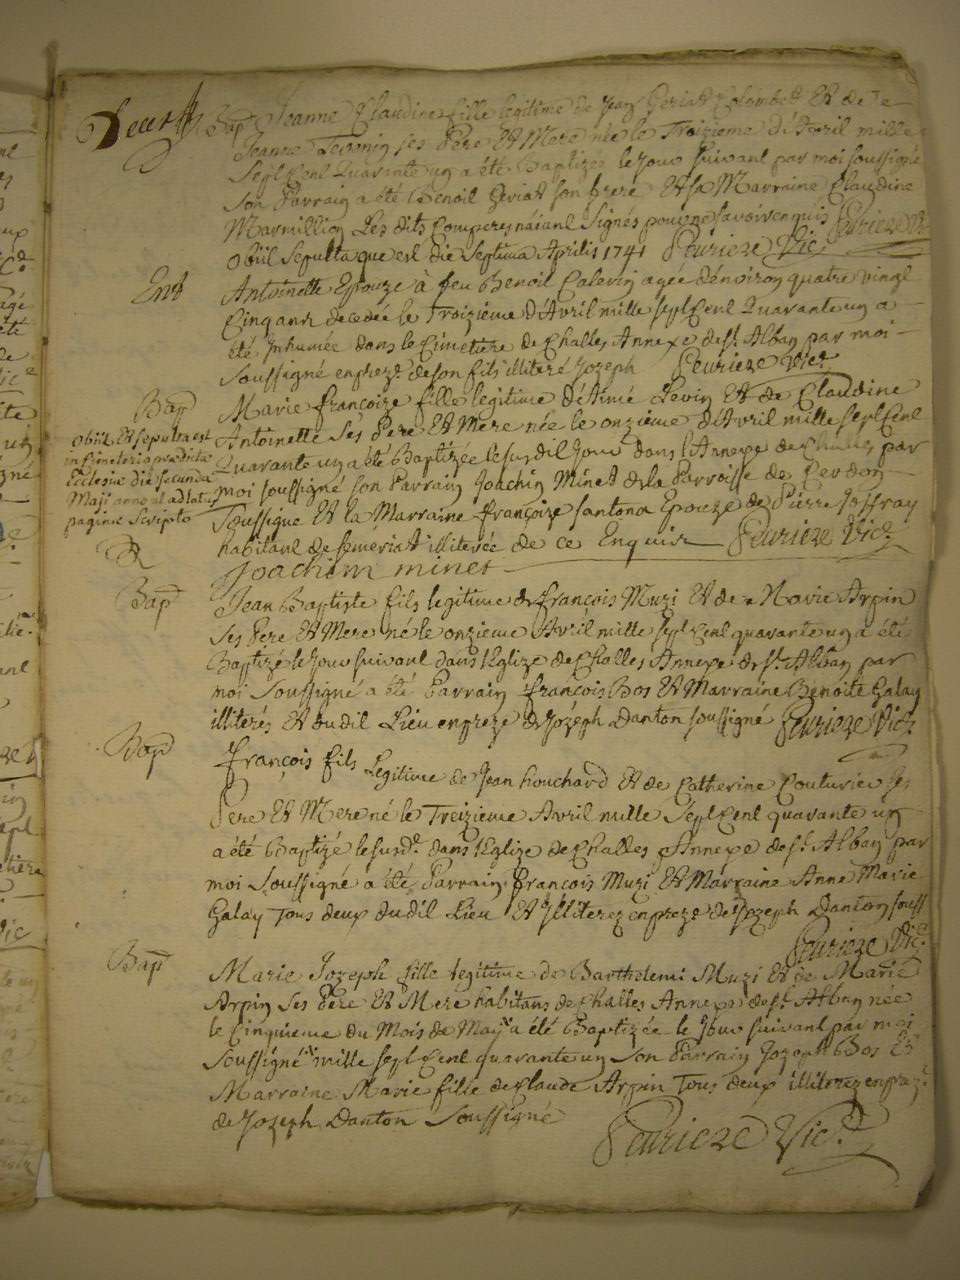 Bap Jeanne Claudine fille legitime de Jean Geriat Colombet Et de Je
Jeanne Tevenin ses Pere Et Mere née le Troizieme d'Avril mille
Sept Cent Quarante un a été Baptizée le Jour suivant par moi soussigné
Son Parrain a été Benoit Geriat son frere Et sa Marraine Claudine
Marmillion Les dits Comperes n'aiant Signés pour ne savoir enquis Peurieze Vic
Obiit Sepulta que est die Septima Aprilis 1741 Peurieze Vic
Ent Antoinette Epouze à feu Benoit Calevin agée d'environ quatre vingt
Cinq ans decedée le Troizième d'Avril mille sept Cent Quarante un a
été Inhumée dans le Cimetiere de Challes Annexe de st. Alban par moi
Soussigné en preze. de son fils illiteré Jozeph Peurieze Vic.
Bap Marie françoize fille legitime d'Aimé Pevin Et de Claudine
Antoinette Ses Pere Et Mere née le onzieme d'Avril mille Sept Cent
Quarante un a été Baptizée le susdit Jour dans l'Annexe de Challes par
moi soussigné son Parrain Joachin Minet de la Parroisse de Cerdon
Soussigné Et la Marraine françoize santona Epouze de Pierre Joffray
habitant de semeriat illiterée de ce Enquise Peurieze Vic.
Joachim minet
Obiit Et sepulta est
in Cimeterio praedictae
Ecclesiae die secunda
Maji anno ut ad latus
paginae Scripto
Bap Jean Baptiste fils legitime de françois Muzi Et de Marie Arpin
Ses Pere Et Mere né le onzieme Avril mille sept Cent quarante un a été
Baptizé le Jour suivant dans l'Eglize de Challes Annexe de st. Alban par
moi Soussigné a été Parrain françois Bos Et Marraine Benoite Galay
illiterés Et du dit Lieu en preze de Jozeph Danton soussigné Peurieze Vic.
Bap françois fils Legitime de Jean houchard Et de Catherine Couturier ses
Pere Et Mere né le Treizieme Avril mille Sept Cent quarante un
a été Baptizé le susdt. dans l'Eglize de Challes Annexe de st. Alban par
moi Soussigné a été Parrain françois Muzi Et Marraine Anne Marie
Galay Tous deux du dit Lieu Et Illiterez en preze de Jozeph Danton souss
Peurieze Vic.
Bap Marie Jozeph fille legitime de Barthelemi Muzi Et de Marie
Arpin Ses Pere Et Mere habitans de Challes Annexe de st. Alban née
le Cinquieme du Mois de May a été Baptizée le Jour suivant par moi
Soussigné mille sept Cent quarante un Son Parrain Jozeph Bos Et
Marraine Marie fille de Claude Arpin Tous deux illiterez en prez.
de Jozeph Danton Soussigné
Peurieze Vic.